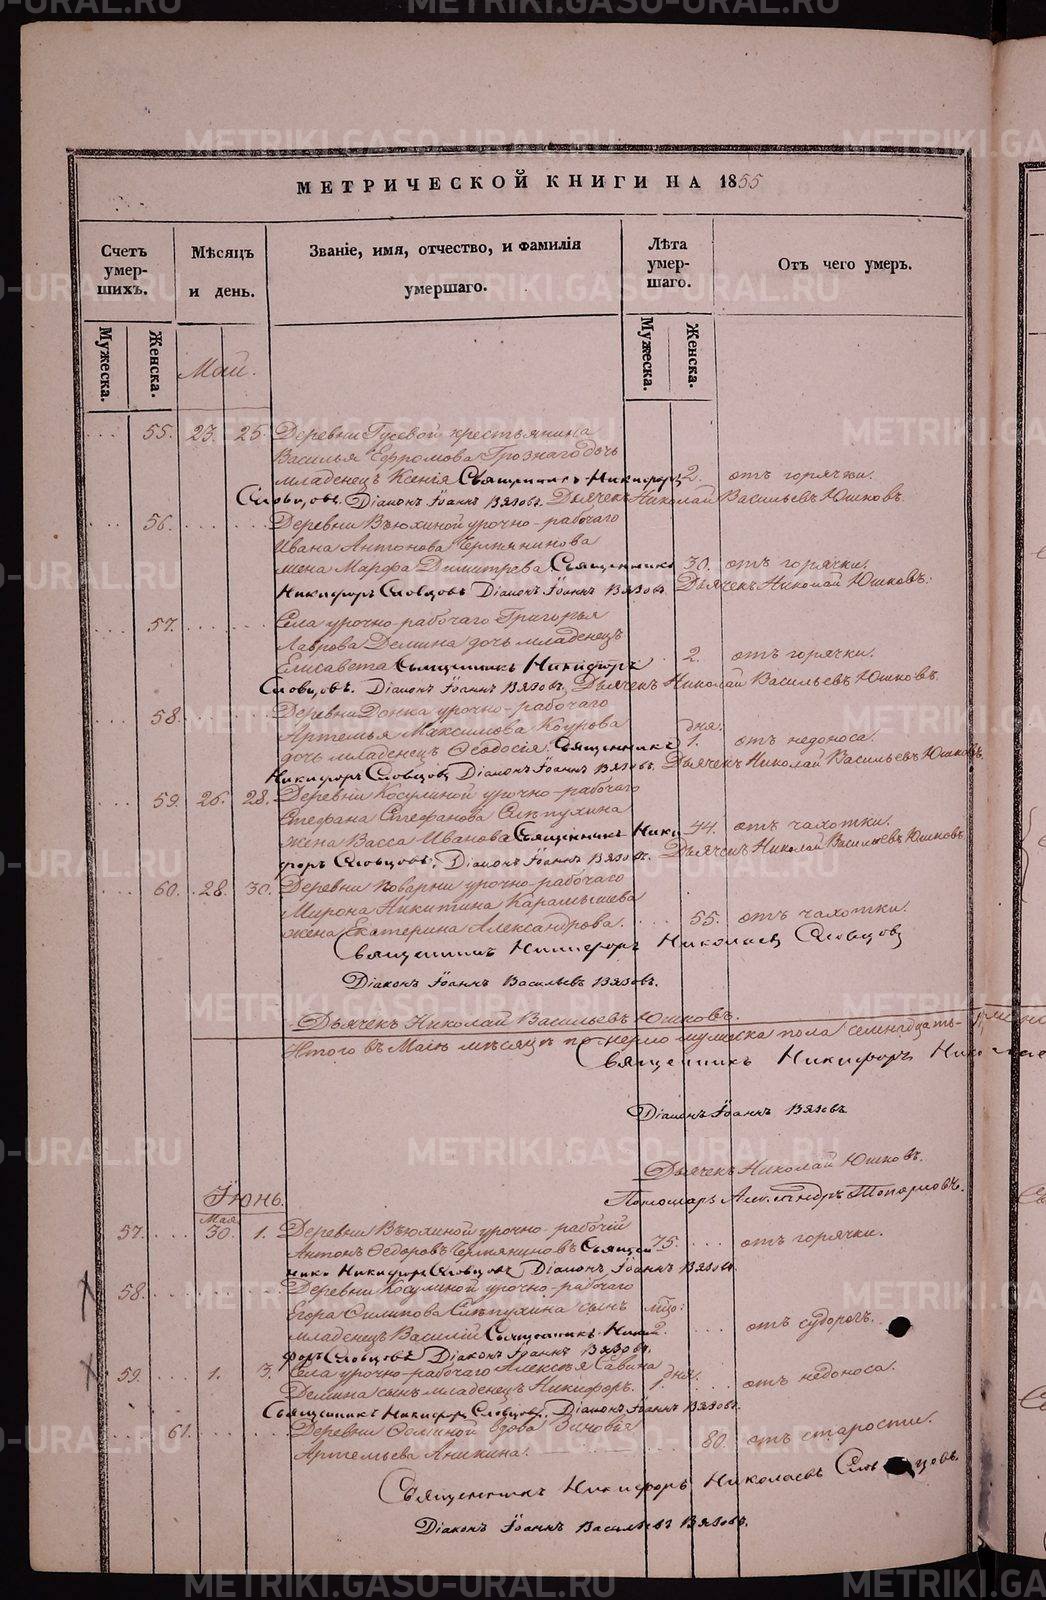 METRIKI.GASO-URAL.RU
МЕТРИЧЕСКОЙ КНИГИ НА 1855
Счетъ умер-шихъ.
Мѣсяцъ и день.
Званіе, имя, отчество, и фамилія умершаго.
Лѣта умер-шаго.
Отъ чего умеръ.
Мужеска. Женска.
Мужеска. Женска.
Май.
55. 23. 25. Деревни Гусевой крестьянина
Василья Ефромова Грознаго дочь
младенецъ Ксенія Священникъ Никифоръ 2. отъ горячки.
Словцовъ. Діаконъ Іоаннъ Вязовъ. Дьячекъ Николай Васильевъ Юшковъ.
56. Деревни Вьюхиной урочно-рабочаго
Ивана Антонова Чермянинова
жена Марфа Димитрева Священникъ 30. отъ горячки.
Никифоръ Словцовъ Діаконъ Іоаннъ Вязовъ. Дьячекъ Николай Юшковъ:
57. Села урочно-рабочаго Григорья
Лаврова Демина дочь младенецъ
Елисавета Священникъ Никифоръ 2. отъ горячки.
Словцовъ. Діаконъ Іоаннъ Вязовъ. Дьячекъ Николай Васильевъ Юшковъ.
58. Деревни Донка урочно-рабочаго
Артемья Максимова Коурова дня:
дочь младенецъ Ѳеодосія. Священникъ 1. отъ недоноса.
Никифоръ Словцовъ Діаконъ Іоаннъ Вязовъ. Дьячекъ Николай Васильевъ Юшковъ.
59. 26. 28. Деревни Косулиной урочно-рабочаго
Стефана Стефанова Слѣпухина
жена Васса Иванова Священникъ Ники 44. отъ чахотки.
форъ Словцовъ. Діаконъ Іоаннъ Вязовъ. Дьячекъ Николай Васильевъ Юшковъ.
60. 28. 30. Деревни Поварни урочно-рабочаго
Мирона Никитина Карамышева
жена Екатерина Александрова. 55. отъ чахотки.
Священникъ Никифоръ Николаевъ Словцовъ
Діаконъ Іоаннъ Васильевъ Вязовъ.
Дьячекъ Николай Васильевъ Юшковъ.
Итого въ Маіѣ мѣсяцѣ померло мужеска пола семнадцать
Священникъ Никифоръ Николае
Діаконъ Іоаннъ Вязовъ
Дьячекъ Николай Юшковъ.
Пономарь Александръ Топорковъ.
Іюнь.
Мая
57. 30. 1. Деревни Вьюхиной урочно-рабочій
Антонъ Ѳедоровъ Чермяниновъ Священ 75. отъ горячки.
никъ Никифоръ Словцовъ Діаконъ Іоаннъ Вязовъ.
58. Деревни Косулиной урочно-рабочаго
Егора Филипова Слѣпухина сынъ мцо:
младенецъ Василій Священникъ Ники 2. отъ судорогъ.
форъ Словцовъ Діаконъ Іоаннъ Вязовъ.
59. 1. 3. Села урочно-рабочаго Алексѣя Савина дня:
Демина сынъ младенецъ Никифоръ. 1. отъ недоноса.
Священникъ Никифоръ Словцовъ. Діаконъ Іоаннъ Вязовъ.
61. Деревни вдова Зиновья
Артемьева Аникина. 80. отъ старости.
Священникъ Никифоръ Николаевъ Словцовъ
Діаконъ Іоаннъ Васильевъ Вязовъ.